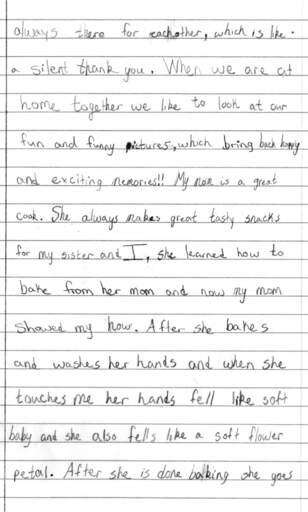 always there for eachother, which is like
a silent thank you. When we are at
home together we like to look at our
fun and funny pictures, which bring back happy
and exciting memories!! My mom is a great
cook. She always makes great tasty snacks
for my sister and I, she learned how to
bake from her mom and now my mom
showed my how. After she bakes
and washes her hands and when she
touches me her hands fell like soft
baby and she also fells like a soft flower
petal. After she is done bakking she goes